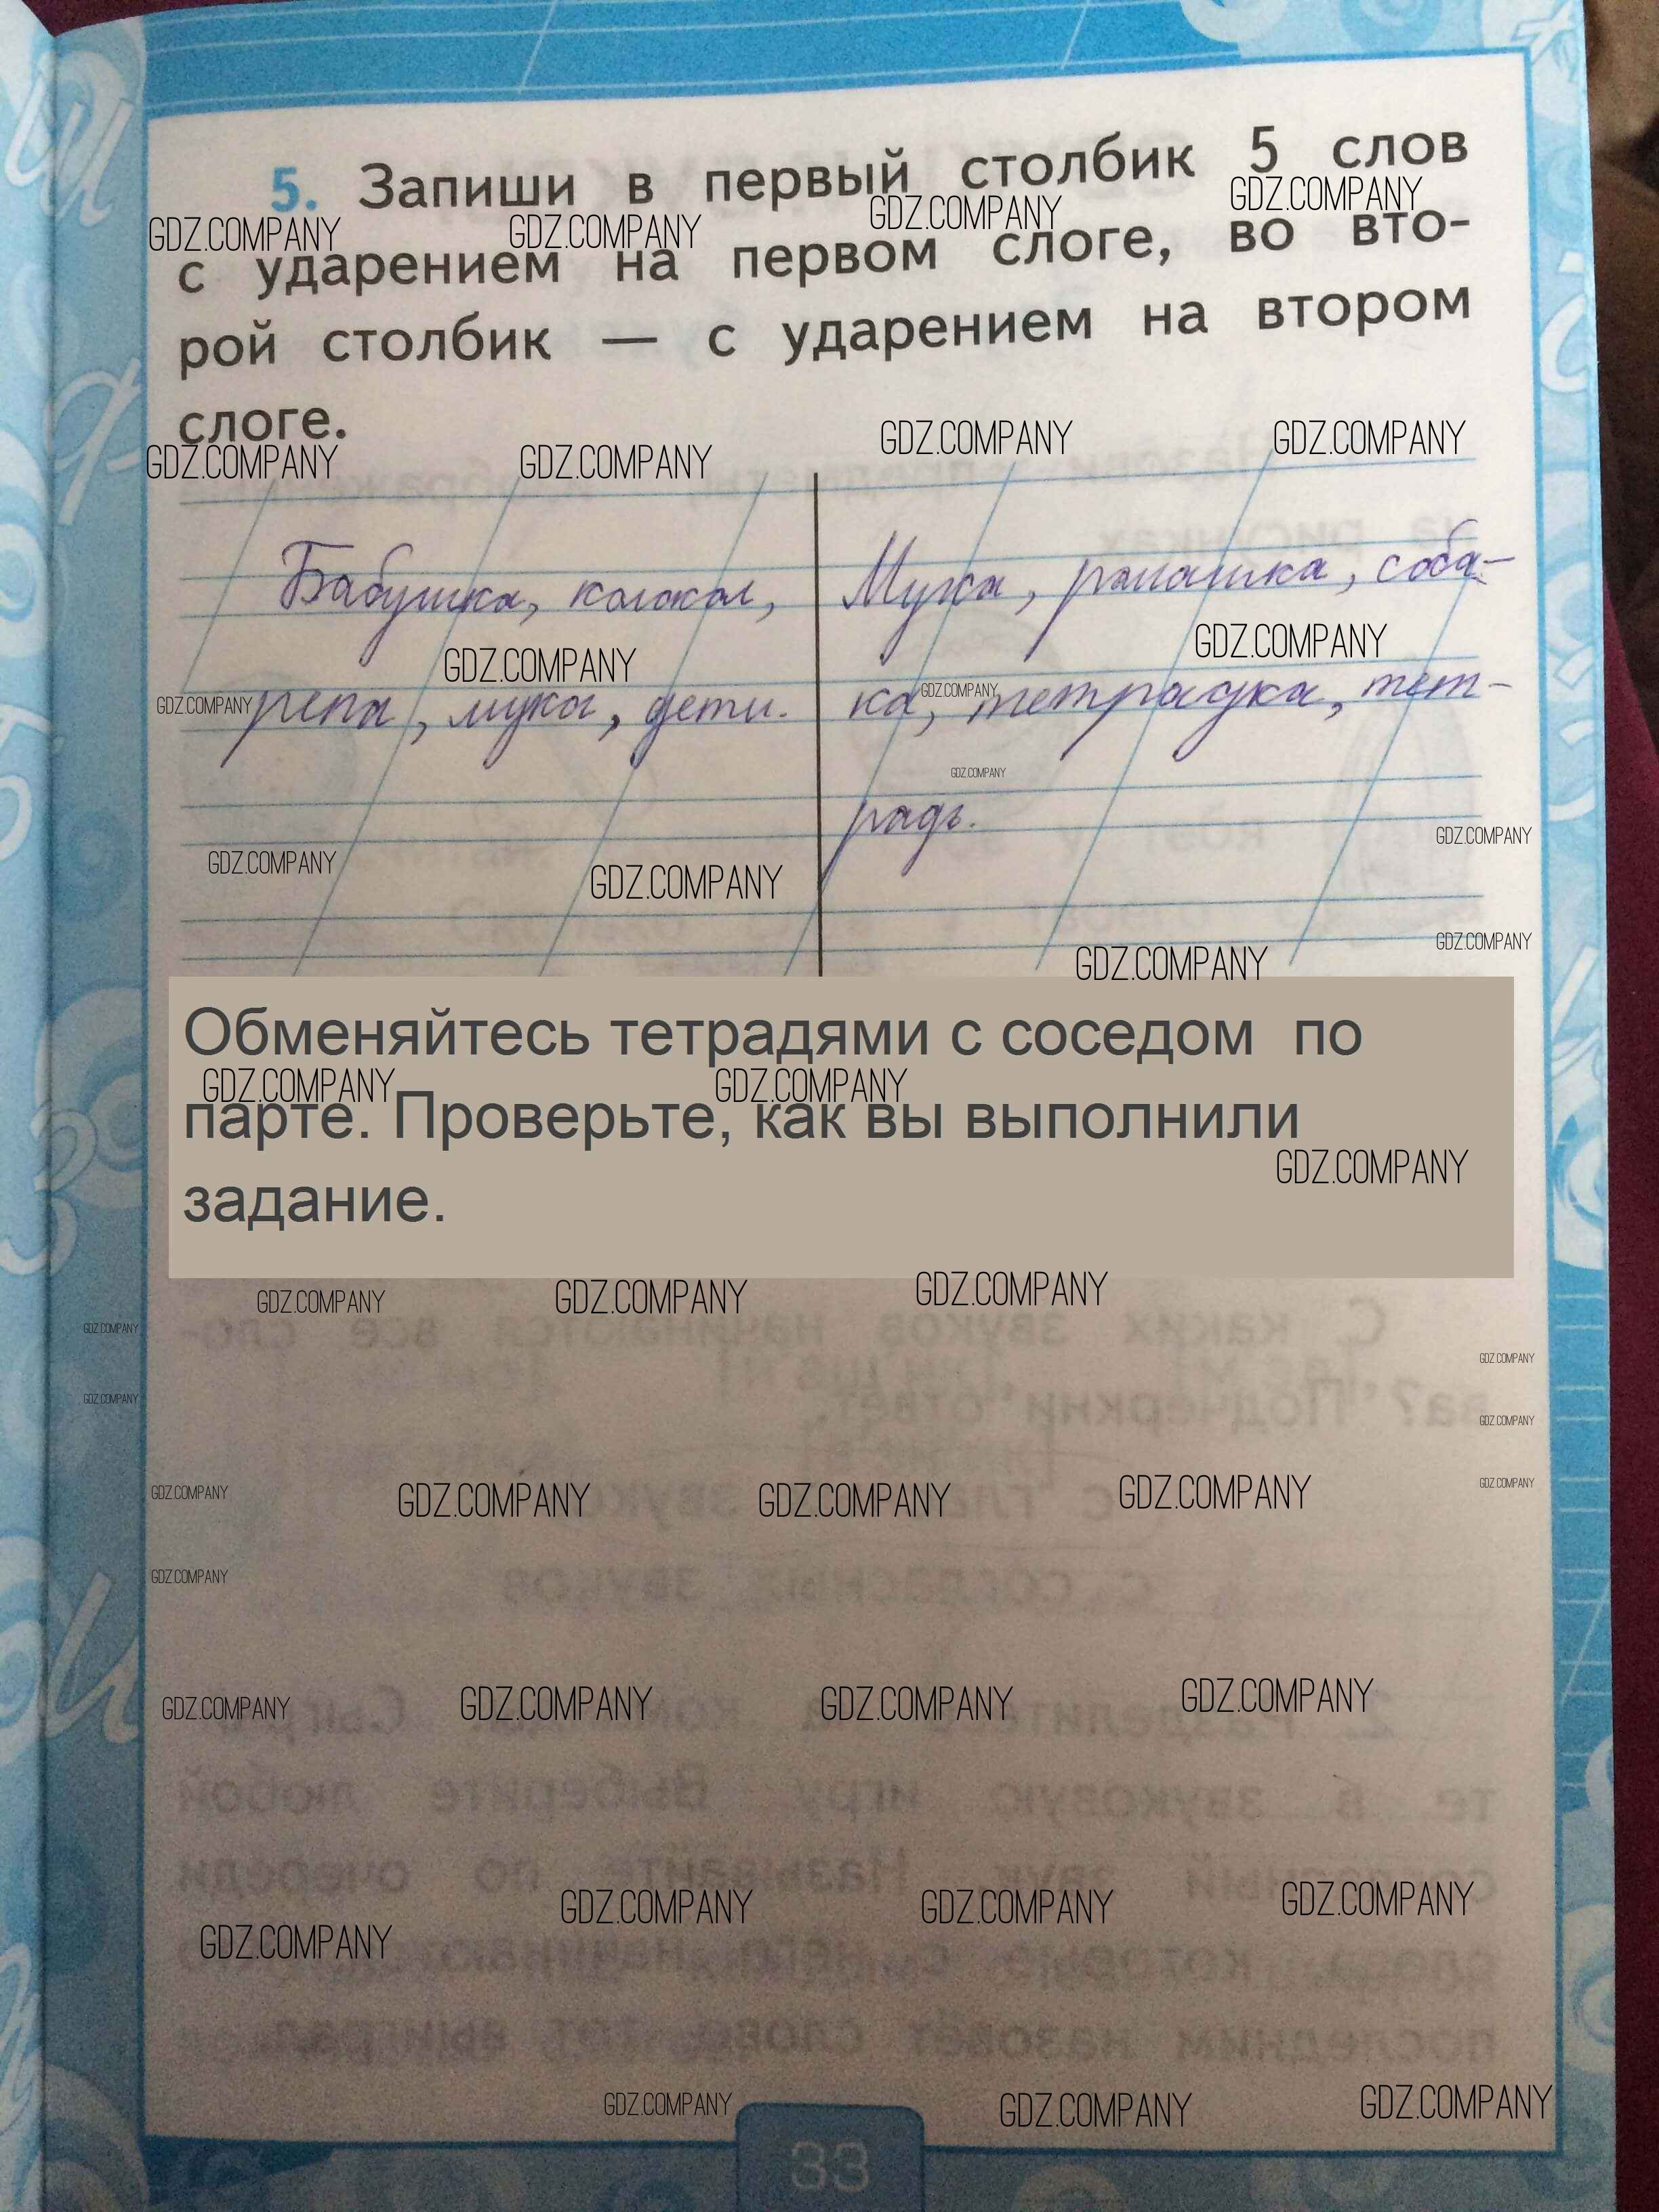 5. Запиши в первый столбик 5 слов
с ударением на первом слоге, во вто-
рой столбик — с ударением на втором
слоге.
Бабушка, колокол,
репа, мука, дети.
Мука, ромашка, соба-
ка, тетрадка, тет-
радь.
Обменяйтесь тетрадями с соседом по
парте. Проверьте, как вы выполнили
задание.
33
GDZ.COMPANY